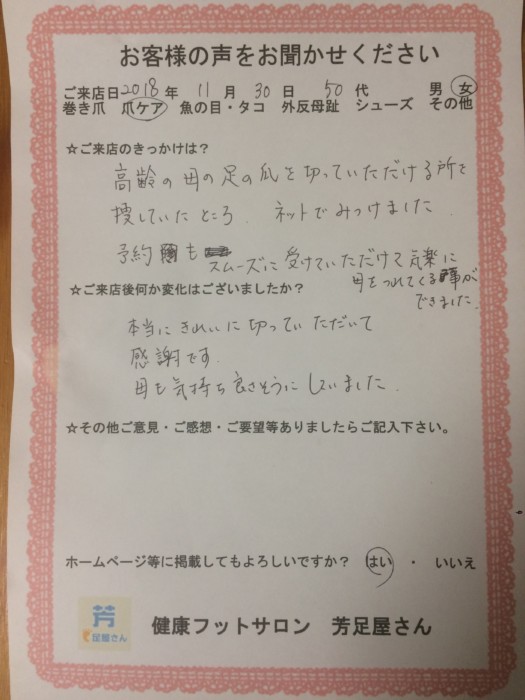 お客様の声をお聞かせください
ご来店日2018年 11月 30日 50代 男 女
巻き爪 爪ケア 魚の目・タコ 外反母趾 シューズ その他
☆ご来店のきっかけは?
高齢の母の足の爪を切っていただける所を
捜していたところ、ネットでみつけました。
予約も
スムーズに受けていただけて気楽に
母をつれてくる事が
できました。
☆ご来店後何か変化はございましたか?
本当にきれいに切っていただいて
感謝です。
母も気持ち良さそうにしていました。
☆その他ご意見・ご感想・ご要望等ありましたらご記入下さい。
ホームページ等に掲載してもよろしいですか? はい ・ いいえ
芳
足屋さん
健康フットサロン 芳足屋さん